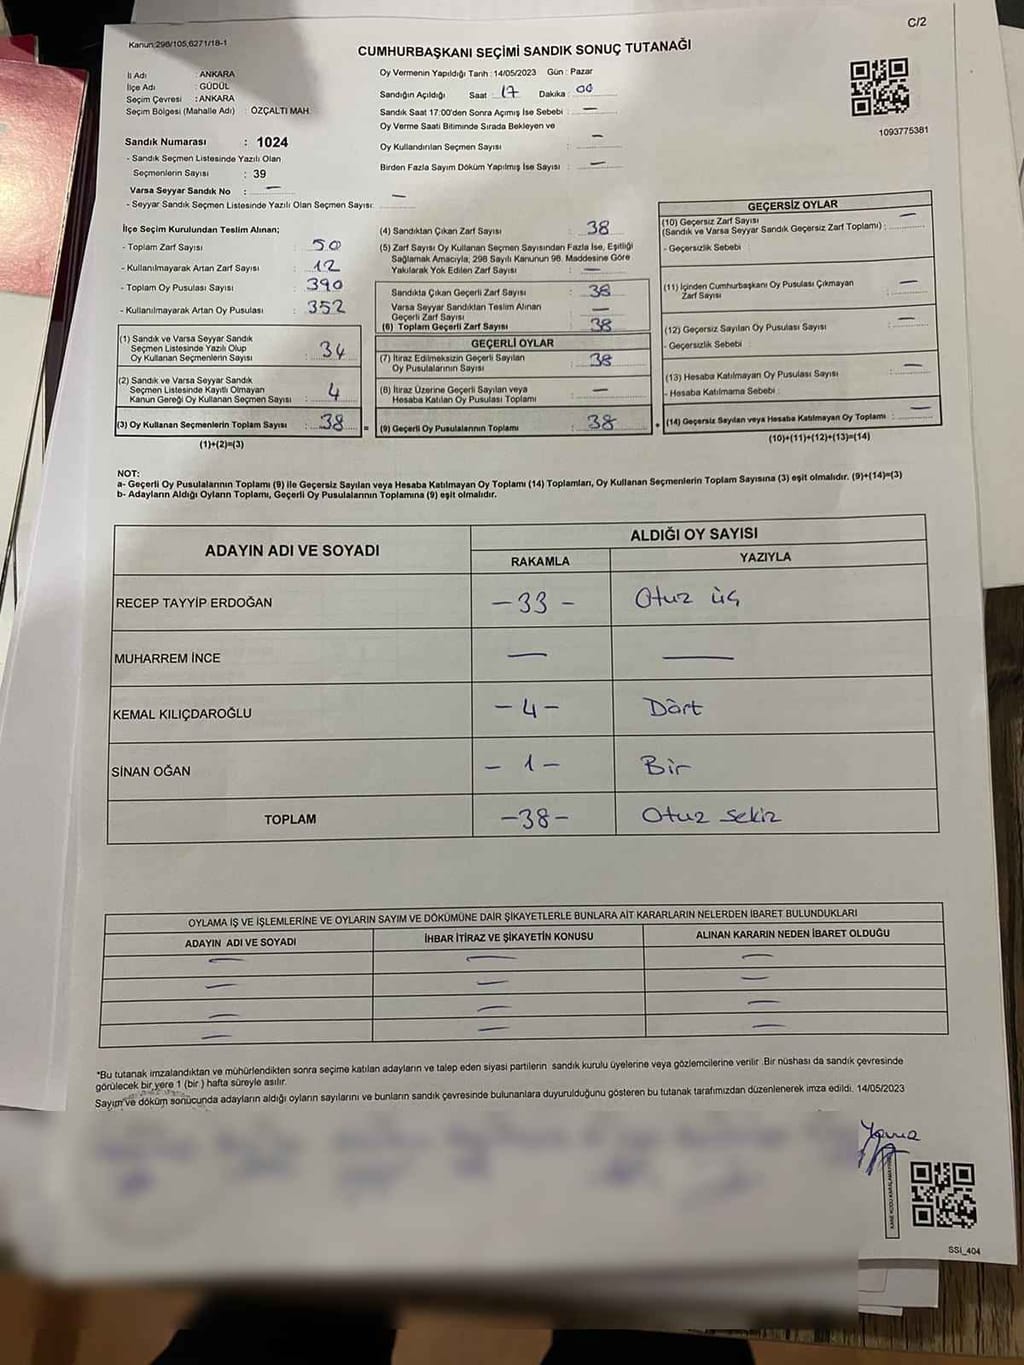 C/2
Kanun:298/105,6271/18-1
CUMHURBAŞKANI SEÇİMİ SANDIK SONUÇ TUTANAĞI
İl Adı : ANKARA
İlçe Adı : GÜDÜL
Seçim Çevresi : ANKARA
Seçim Bölgesi (Mahalle Adı) : ÖZÇALTI MAH.
Sandık Numarası : 1024
- Sandık Seçmen Listesinde Yazılı Olan
Seçmenlerin Sayısı : 39
Varsa Seyyar Sandık No : —
- Seyyar Sandık Seçmen Listesinde Yazılı Olan Seçmen Sayısı: —
Oy Vermenin Yapıldığı Tarih : 14/05/2023 Gün : Pazar
Sandığın Açıldığı Saat : 17 Dakika : 00
Sandık Saat 17:00'den Sonra Açımış İse Sebebi : —
Oy Verme Saati Bitiminde Sırada Bekleyen ve
Oy Kullandırılan Seçmen Sayısı : —
Birden Fazla Sayım Döküm Yapılmış İse Sayısı : —
1093775381
İlçe Seçim Kurulundan Teslim Alınan;
- Toplam Zarf Sayısı : 50
- Kullanılmayarak Artan Zarf Sayısı : 12
- Toplam Oy Pusulası Sayısı : 390
- Kullanılmayarak Artan Oy Pusulası : 352
(1) Sandık ve Varsa Seyyar Sandık
Seçmen Listesinde Yazılı Olup
Oy Kullanan Seçmenlerin Sayısı : 34
(2) Sandık ve Varsa Seyyar Sandık
Seçmen Listesinde Kayıtlı Olmayan
Kanun Gereği Oy Kullanan Seçmen Sayısı : 4
(3) Oy Kullanan Seçmenlerin Toplam Sayısı : 38 =
(1)+(2)=(3)
(4) Sandıktan Çıkan Zarf Sayısı : 38
(5) Zarf Sayısı Oy Kullanan Seçmen Sayısından Fazla İse, Eşitliği
Sağlamak Amacıyla; 298 Sayılı Kanunun 98. Maddesine Göre
Yakılarak Yok Edilen Zarf Sayısı : —
Sandıkta Çıkan Geçerli Zarf Sayısı : 38
Varsa Seyyar Sandıktan Teslim Alınan
Geçerli Zarf Sayısı : —
(6) Toplam Geçerli Zarf Sayısı : 38
GEÇERLİ OYLAR
(7) İtiraz Edilmeksizin Geçerli Sayılan
Oy Pusulalarının Sayısı : 38
(8) İtiraz Üzerine Geçerli Sayılan veya
Hesaba Katılan Oy Pusulası Toplamı : —
(9) Geçerli Oy Pusulalarının Toplamı : 38 +
GEÇERSİZ OYLAR
(10) Geçersiz Zarf Sayısı
(Sandık ve Varsa Seyyar Sandık Geçersiz Zarf Toplamı) : —
- Geçersizlik Sebebi :
(11) İçinden Cumhurbaşkanı Oy Pusulası Çıkmayan
Zarf Sayısı : —
(12) Geçersiz Sayılan Oy Pusulası Sayısı : —
- Geçersizlik Sebebi :
(13) Hesaba Katılmayan Oy Pusulası Sayısı : —
- Hesaba Katılmama Sebebi :
(14) Geçersiz Sayılan veya Hesaba Katılmayan Oy Toplamı : —
(10)+(11)+(12)+(13)=(14)
NOT:
a- Geçerli Oy Pusulalarının Toplamı (9) ile Geçersiz Sayılan veya Hesaba Katılmayan Oy Toplamı (14) Toplamları, Oy Kullanan Seçmenlerin Toplam Sayısına (3) eşit olmalıdır. (9)+(14)=(3)
b- Adayların Aldığı Oyların Toplamı, Geçerli Oy Pusulalarının Toplamına (9) eşit olmalıdır.
ADAYIN ADI VE SOYADI ALDIĞI OY SAYISI
RAKAMLA YAZIYLA
RECEP TAYYİP ERDOĞAN -33- Otuz üç
MUHARREM İNCE — —
KEMAL KILIÇDAROĞLU -4- Dört
SİNAN OĞAN -1- Bir
TOPLAM -38- Otuz sekiz
OYLAMA İŞ VE İŞLEMLERİNE VE OYLARIN SAYIM VE DÖKÜMÜNE DAİR ŞİKAYETLERLE BUNLARA AİT KARARLARIN NELERDEN İBARET BULUNDUKLARI
ADAYIN ADI VE SOYADI İHBAR İTİRAZ VE ŞİKAYETİN KONUSU ALINAN KARARIN NEDEN İBARET OLDUĞU
— — —
— — —
— — —
— — —
*Bu tutanak imzalandıktan ve mühürlendikten sonra seçime katılan adayların ve talep eden siyasi partilerin sandık kurulu üyelerine veya gözlemcilerine verilir .Bir nüshası da sandık çevresinde
görülecek bir yere 1 (bir ) hafta süreyle asılır.
Sayım ve döküm sonucunda adayların aldığı oyların sayılarını ve bunların sandık çevresinde bulunanlara duyurulduğunu gösteren bu tutanak tarafımızdan düzenlenerek imza edildi. 14/05/2023
SSİ_404